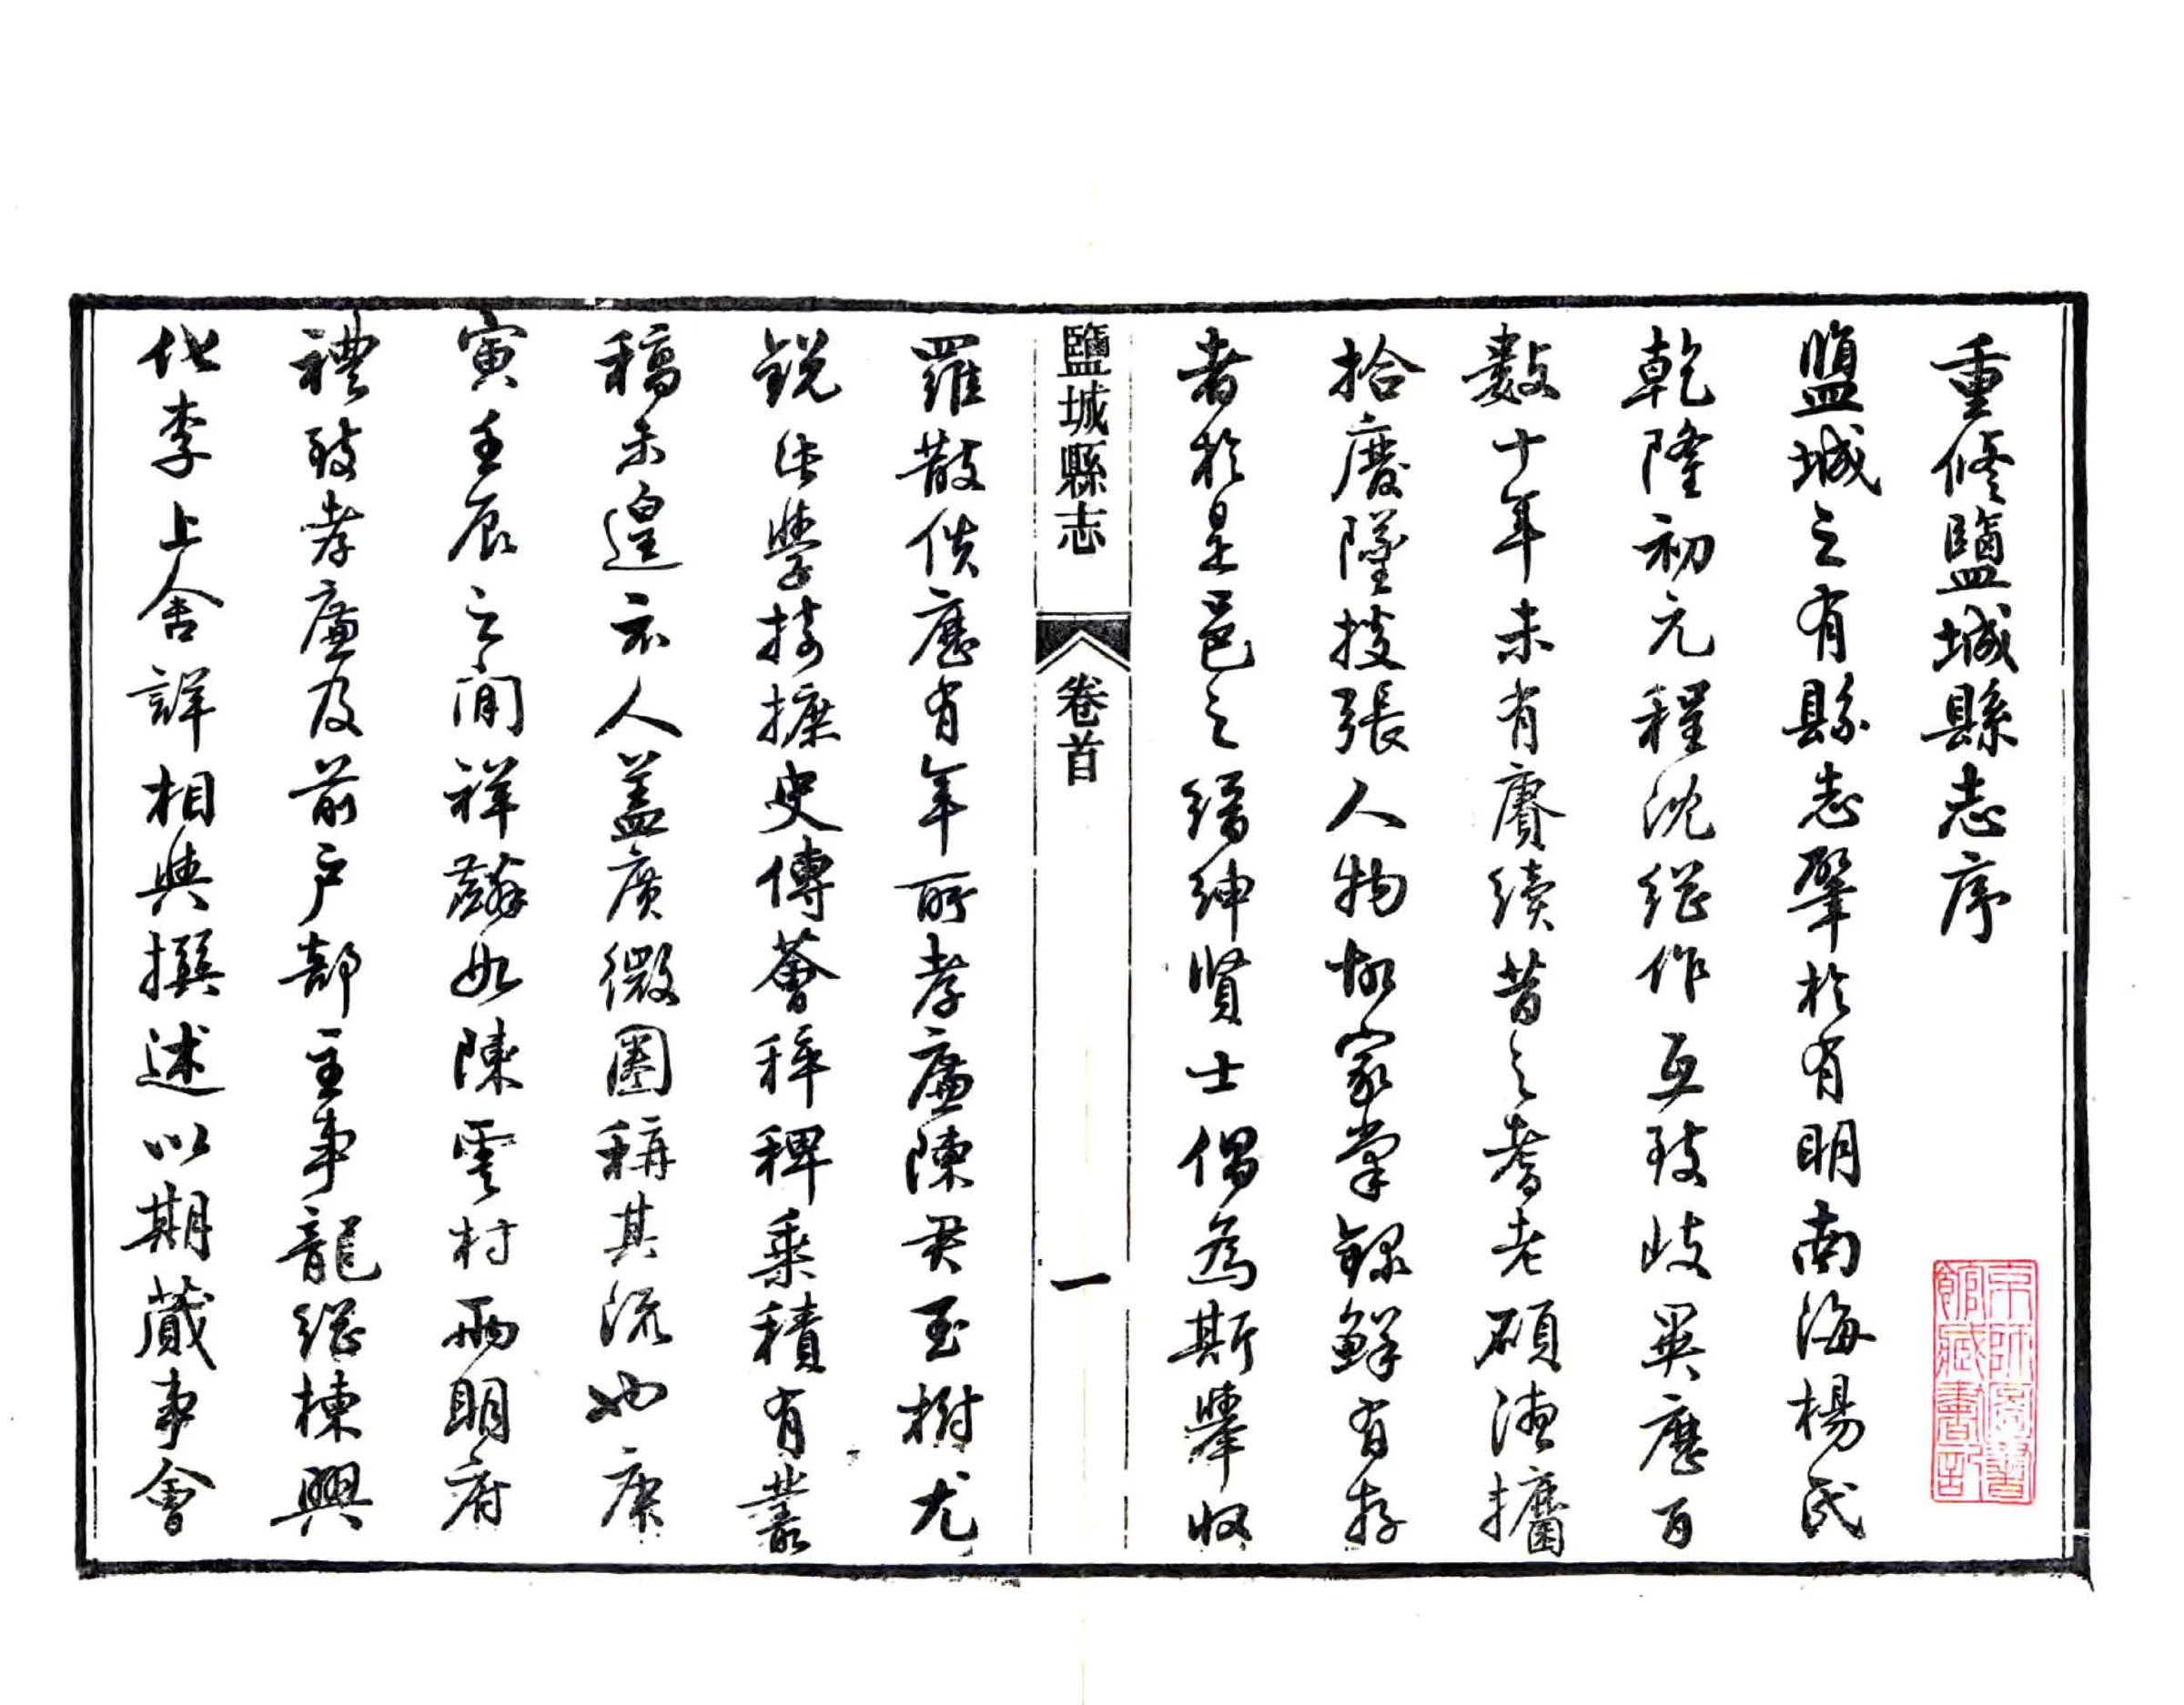 重修鹽城縣志序
鹽城之有縣志肇於有明南海楊氏
乾隆初元程沈繼作互致歧異歷百
數十年未有賡續昔之耆老碩德攟
拾廢墜張人物故家掌錄鮮有存
者於是邑之縉紳賢士倡為斯舉收
鹽城縣志 卷首 一
羅散佚歷有年所孝廉陳君玉樹尤
銳學掎摭史傳薈稡稗乘積有叢
稿未遑示人蓋廣微圈稱其流也庚
寅壬辰之間祥麟如陳雲村兩明府
禮致孝廉及前戶部主事龍繼棟興
化李上舍詳相與撰述以期蕆事會
京師圖書
館藏書記